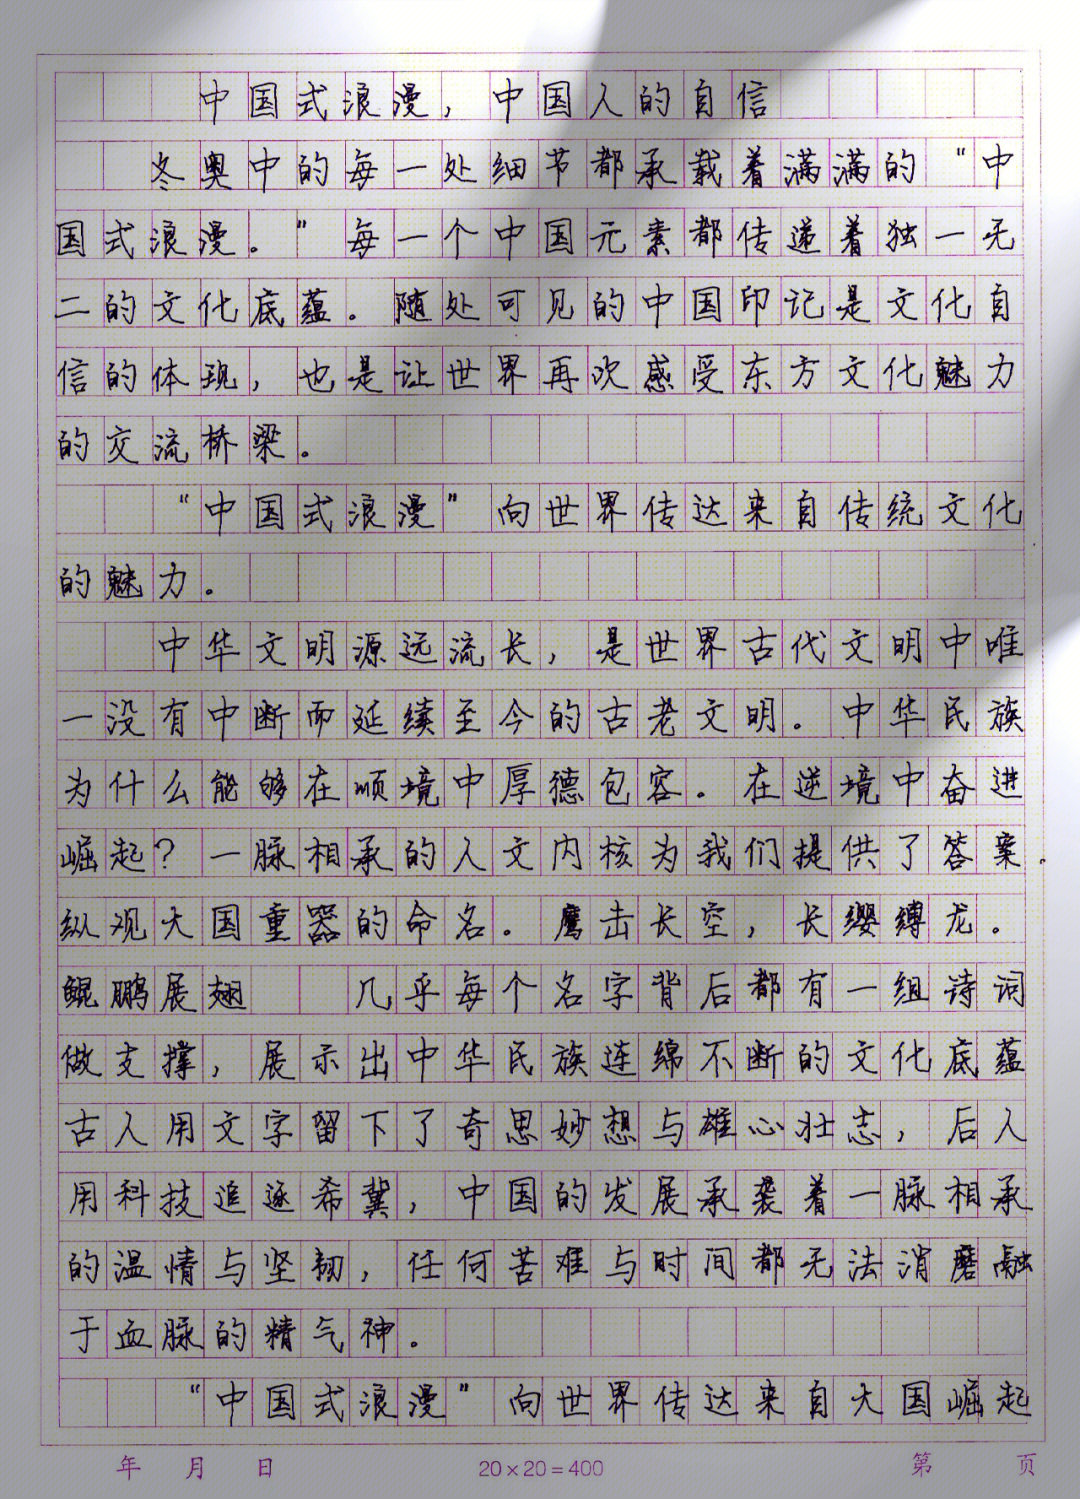 中国式浪漫，中国人的自信
冬奥中的每一处细节都承载着满满的“中
国式浪漫。”每一个中国元素都传递着独一无
二的文化底蕴。随处可见的中国印记是文化自
信的体现，也是让世界再次感受东方文化魅力
的交流桥梁。
“中国式浪漫”向世界传达来自传统文化
的魅力。
中华文明源远流长，是世界古代文明中唯
一没有中断而延续至今的古老文明。中华民族
为什么能够在顺境中厚德包容。在逆境中奋进
崛起？一脉相承的人文内核为我们提供了答案.
纵观大国重器的命名。鹰击长空，长缨缚龙。
鲲鹏展翅 几乎每个名字背后都有一组诗词
做支撑，展示出中华民族连绵不断的文化底蕴
古人用文字留下了奇思妙想与雄心壮志，后人
用科技追逐希冀，中国的发展承袭着一脉相承
的温情与坚韧，任何苦难与时间都无法消磨融
于血脉的精气神。
“中国式浪漫”向世界传达来自大国崛起
年 月 日 20×20=400 第 页